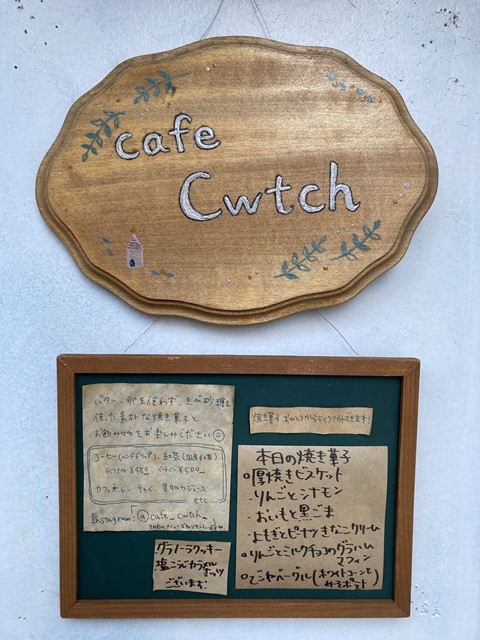 cafe
Cwtch
バター、卵を使わず、きび砂糖を
使った素朴な焼き菓子と
お飲み物をお楽しみください☺
コーヒー(ハンドドリップ)、紅茶
テイクアウト¥480 イートイン¥500
カフェオレ、チャイ、果物のジュース
etc...
Instagram:@cafe_cwtch_
グラノーラクッキー
塩こうじカラメルナッツ
ございます!
焼き菓子 1つからテイクアウトできます!
本日の焼き菓子
○厚焼きビスケット
りんごとシナモン
おいもと黒ごま
よもぎとピーナツきなこクリーム
○りんごとミルクチョコのグラハム
マフィン
○ごジャベーグル(ホワイトコーンと